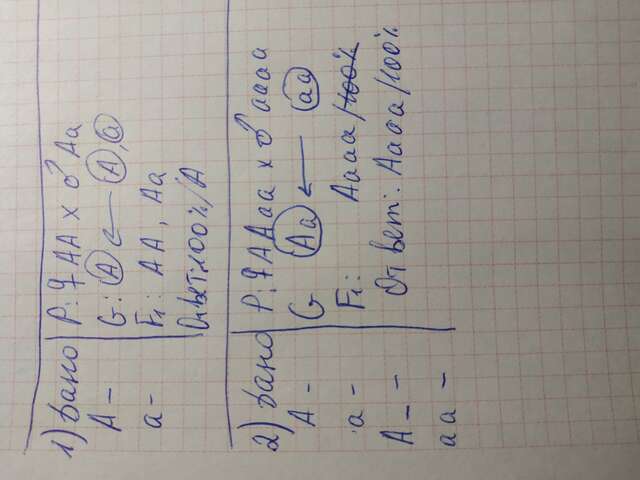 1) Дано
A –
a –
P: ♀ AA x ♂ Aa
G: A ← A, a
F₁: AA, Aa
Ответ: 100%/A
2) Дано
A –
a –
A – –
aa –
P: ♀ AAaa x ♂ aaaa
G Aa ← aa
F₁: Aaaa /100%
Ответ: Aaaa /100%